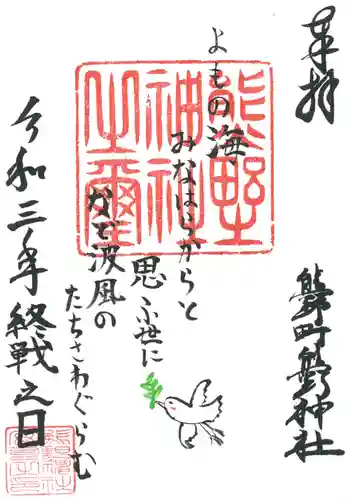 奉拝
熊野町熊野神社
熊野
神社
之璽
よもの海
みなはらからと
思ふ世に
など波風の
たちさわぐらむ
令和三年終戦之日